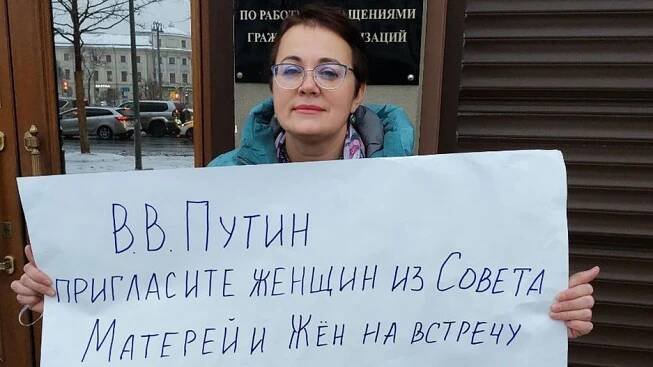 ПО РАБОТЕ
ЩЕНИЯМИ
ГРАЖ
ИЗАЦИЙ
В.В. ПУТИН
ПРИГЛАСИТЕ ЖЕНЩИН ИЗ СОВЕТА
МАТЕРЕЙ И ЖЁН НА ВСТРЕЧУ